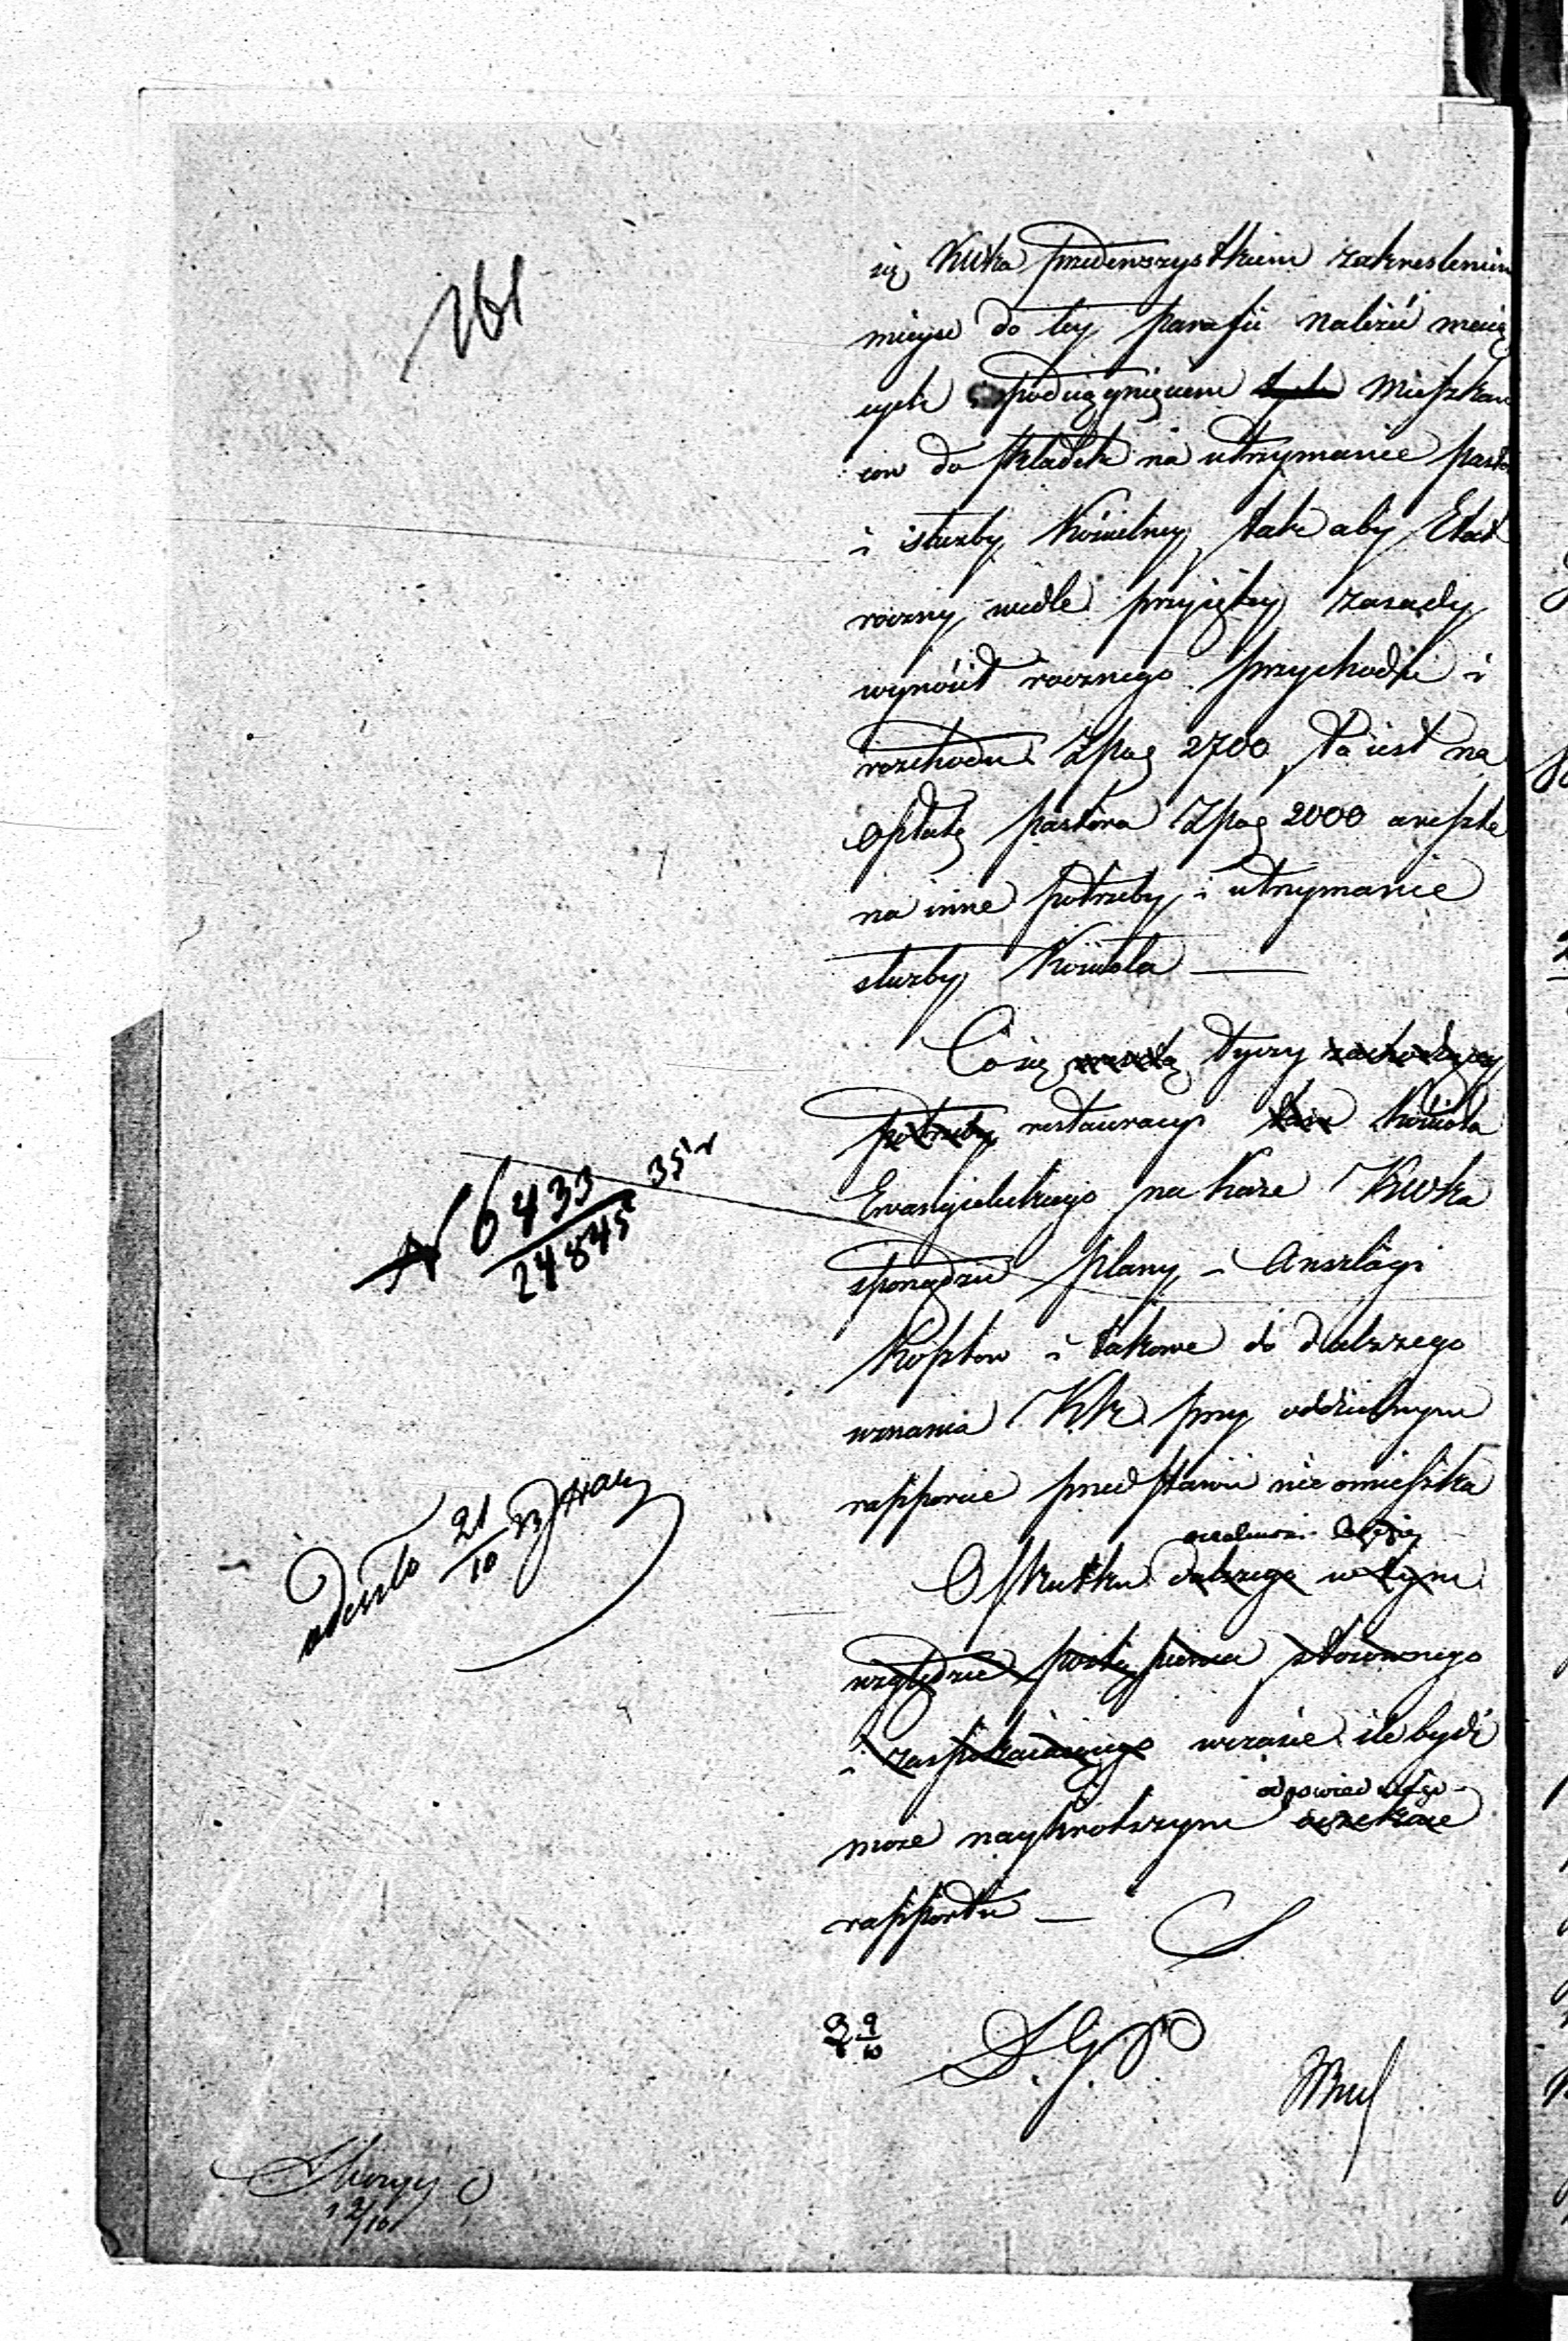 161
się KWka przedewszystkiem zakresleniem
mieysc do tey parafii należeć maią
cych podciągnięciem tych Mieszkań
cow do składek na utrzymanie pasto
i służby Kościelney, tak aby Etat
roczny wedle przyiętey zasady
wynosił rocznego przychodu i
rozchodu Zpag 2700 to iest na
opłatę pastora Zpag 2000 a resztę
na inne potrzeby i utrzymanie
służby Kościoła —
Co się tyczy zachodzącey
potrzeby restauracyi Kościoła
Ewangielickiego nakaże KWka
sporządzić plany i Anszlagi
Kosztow i takowe do dalszego
uznania KRz. przy oddzielnym
rapporcie przedstawić nieomieszka
O skutku dalszego w tym
względzie postąpienia stosownego
i zaspokaiaiącego w czasie ile bydź
może naykrótszym oczekuie
rapportu —
N 6433 / 24845 35
odeszło 21/10
9/10
D. G. P
12/10